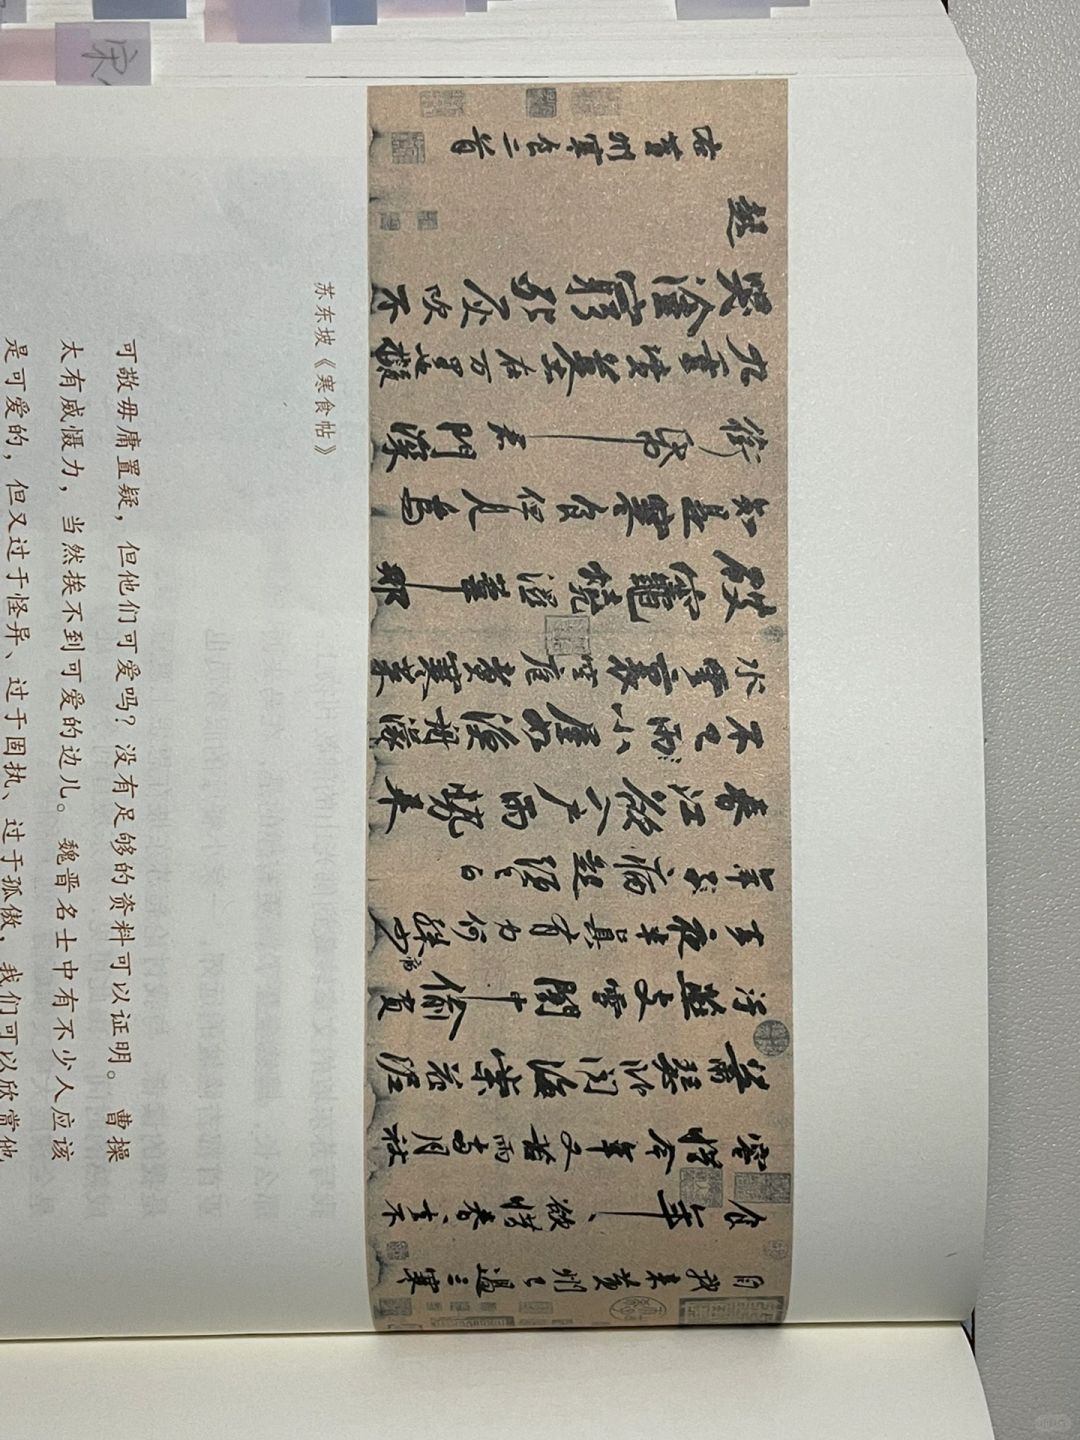 宋
自我来黄州已過三寒
食年〻欲惜春春去不
容惜今年又苦雨兩月秋
蕭瑟卧聞海棠花泥
汙燕支雪闇中偷負
去夜半真有力何殊少
病
年子病起頭已白
春江欲入户雨勢来
不已雨小屋如漁舟濛〻
水雲裏空庖煮寒菜
破竈燒濕葦那
知是寒食但見烏
銜帋君門深
九重墳墓在万里也擬
哭塗窮死灰吹不
起
右黄州寒食二首
苏东坡《寒食帖》
可敬毋庸置疑，但他们可爱吗？没有足够的资料可以证明。曹操
太有威慑力，当然挨不到可爱的边儿。魏晋名士中有不少人应该
是可爱的，但又过于怪异、过于固执、过于孤傲，我们可以欣赏他